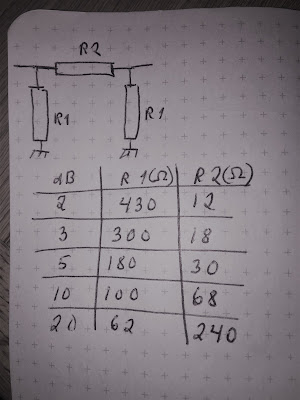 R2
R1 R1
dB R1(Ω) R2(Ω)
2 430 12
3 300 18
5 180 30
10 100 68
20 62 240